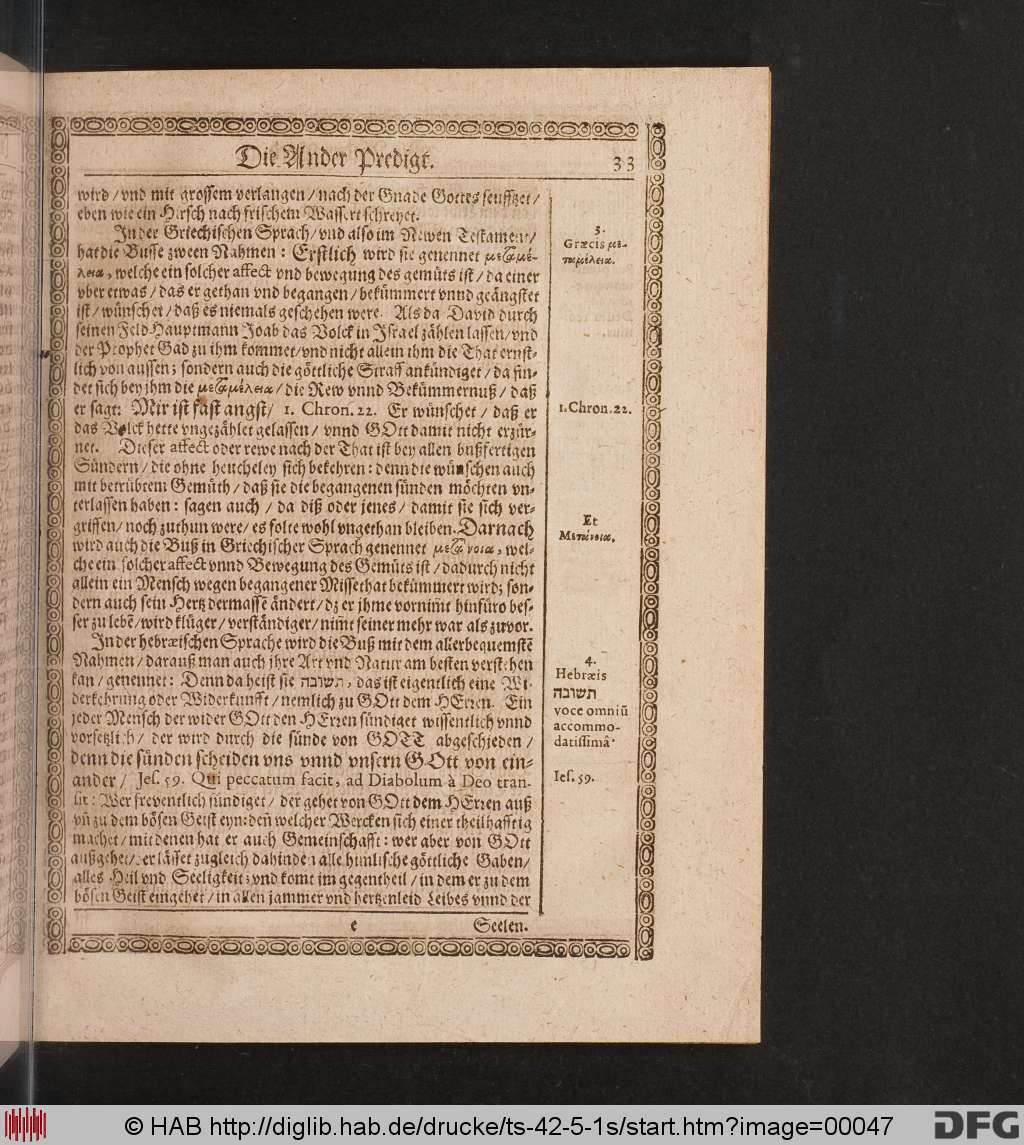 Die Ander Predigt. 33
wird / vnd mit grossem verlangen / nach der Gnade Gottes seufftzet /
eben wie ein Hirsch nach frischem Wassert schreyet.
In der Griechischen Sprach / vnd also im Newen Testament /
hat die Busse zween Nahmen: Erstlich wird sie genennet μεταμέ-
λεια, welche ein solcher affect vnd bewegung des gemüts ist / da einer
vber etwas / das er gethan vnd begangen / bekümmert vnnd geängstet
ist / wünschet / daß es niemals geschehen were. Als da David durch
seinen Feld-Hauptmann Joab das Volck in Israel zählen lassen / vnd
der Prophet Gad zu ihm kommet / vnd nicht allein ihm die That ernst-
lich von aussen; sondern auch die göttliche Straff ankündiget / da fin-
det sich bey ihm die μεταμέλεια / die Rew vnnd Bekümmernuß / daß
er sagt: Mir ist fast angst / 1. Chron. 22. Er wünschet / daß er
das Volck hette vngezählet gelassen / vnnd GOtt damit nicht erzür-
net. Dieser affect oder rewe nach der That ist bey allen bußfertigen
Sündern / die ohne heucheley sich bekehren: denn die wünschen auch
mit betrübtem Gemüth / daß sie die begangenen sünden möchten vn-
terlassen haben: sagen auch / da diß oder jenes / damit sie sich ver-
griffen / noch zuthun were / es solte wohl vngethan bleiben. Darnach
wird auch die Buß in Griechischer Sprach genennet μετάνοια, wel-
che ein solcher affect vnnd Bewegung des Gemüts ist / dadurch nicht
allein ein Mensch wegen begangener Missethat bekümmert wird; son-
dern auch sein Hertz dermassē ändert / dz er jhme vornim̃t hinfüro bes-
ser zu lebē / wird klüger / verständiger / nim̃t seiner mehr war als zuvor.
In der hebræischen Sprache wird die Buß mit dem allerbequemstē
Nahmen / darauß man auch jhre Art vnd Natur am besten verstehen
kan / genennet: Denn da heist sie תשובה, das ist eigentlich eine Wi-
derkehrung oder Widerkunfft / nemlich zu GOtt dem HErren. Ein
jeder Mensch der wider GOtt den HErren sündiget wissentlich vnnd
vorsetzlich / der wird durch die sünde von GOTT abgeschieden /
denn die sünden scheiden vns vnnd vnsern GOtt von ein-
ander / Jes. 59. Qui peccatum facit, ad Diabolum à Deo tran-
sit: Wer freventlich sündiget / der gehet von GOtt dem HErren auß
vñ zu dem bösen Geist eyn: deñ welcher Wercken sich einer theilhafftig
machet / mit denen hat er auch Gemeinschafft: wer aber von GOtt
außgehet / der lässet zugleich dahinden alle himlische göttliche Gaben /
alles Heil vnd Seeligkeit; vnd komt im gegentheil / in dem er zu dem
bösen Geist eingehet / in allen jammer vnd hertzenleid Leibes vnnd der
e Seelen.
3.
Græcis με-
ταμέλεια.
1. Chron. 22.
Et
Μετάνοια.
4.
Hebræis
תשובה
voce omniū
accommo-
datissimâ.
Ies. 59.
© HAB http://diglib.hab.de/drucke/ts-42-5-1s/start.htm?image=00047
DFG